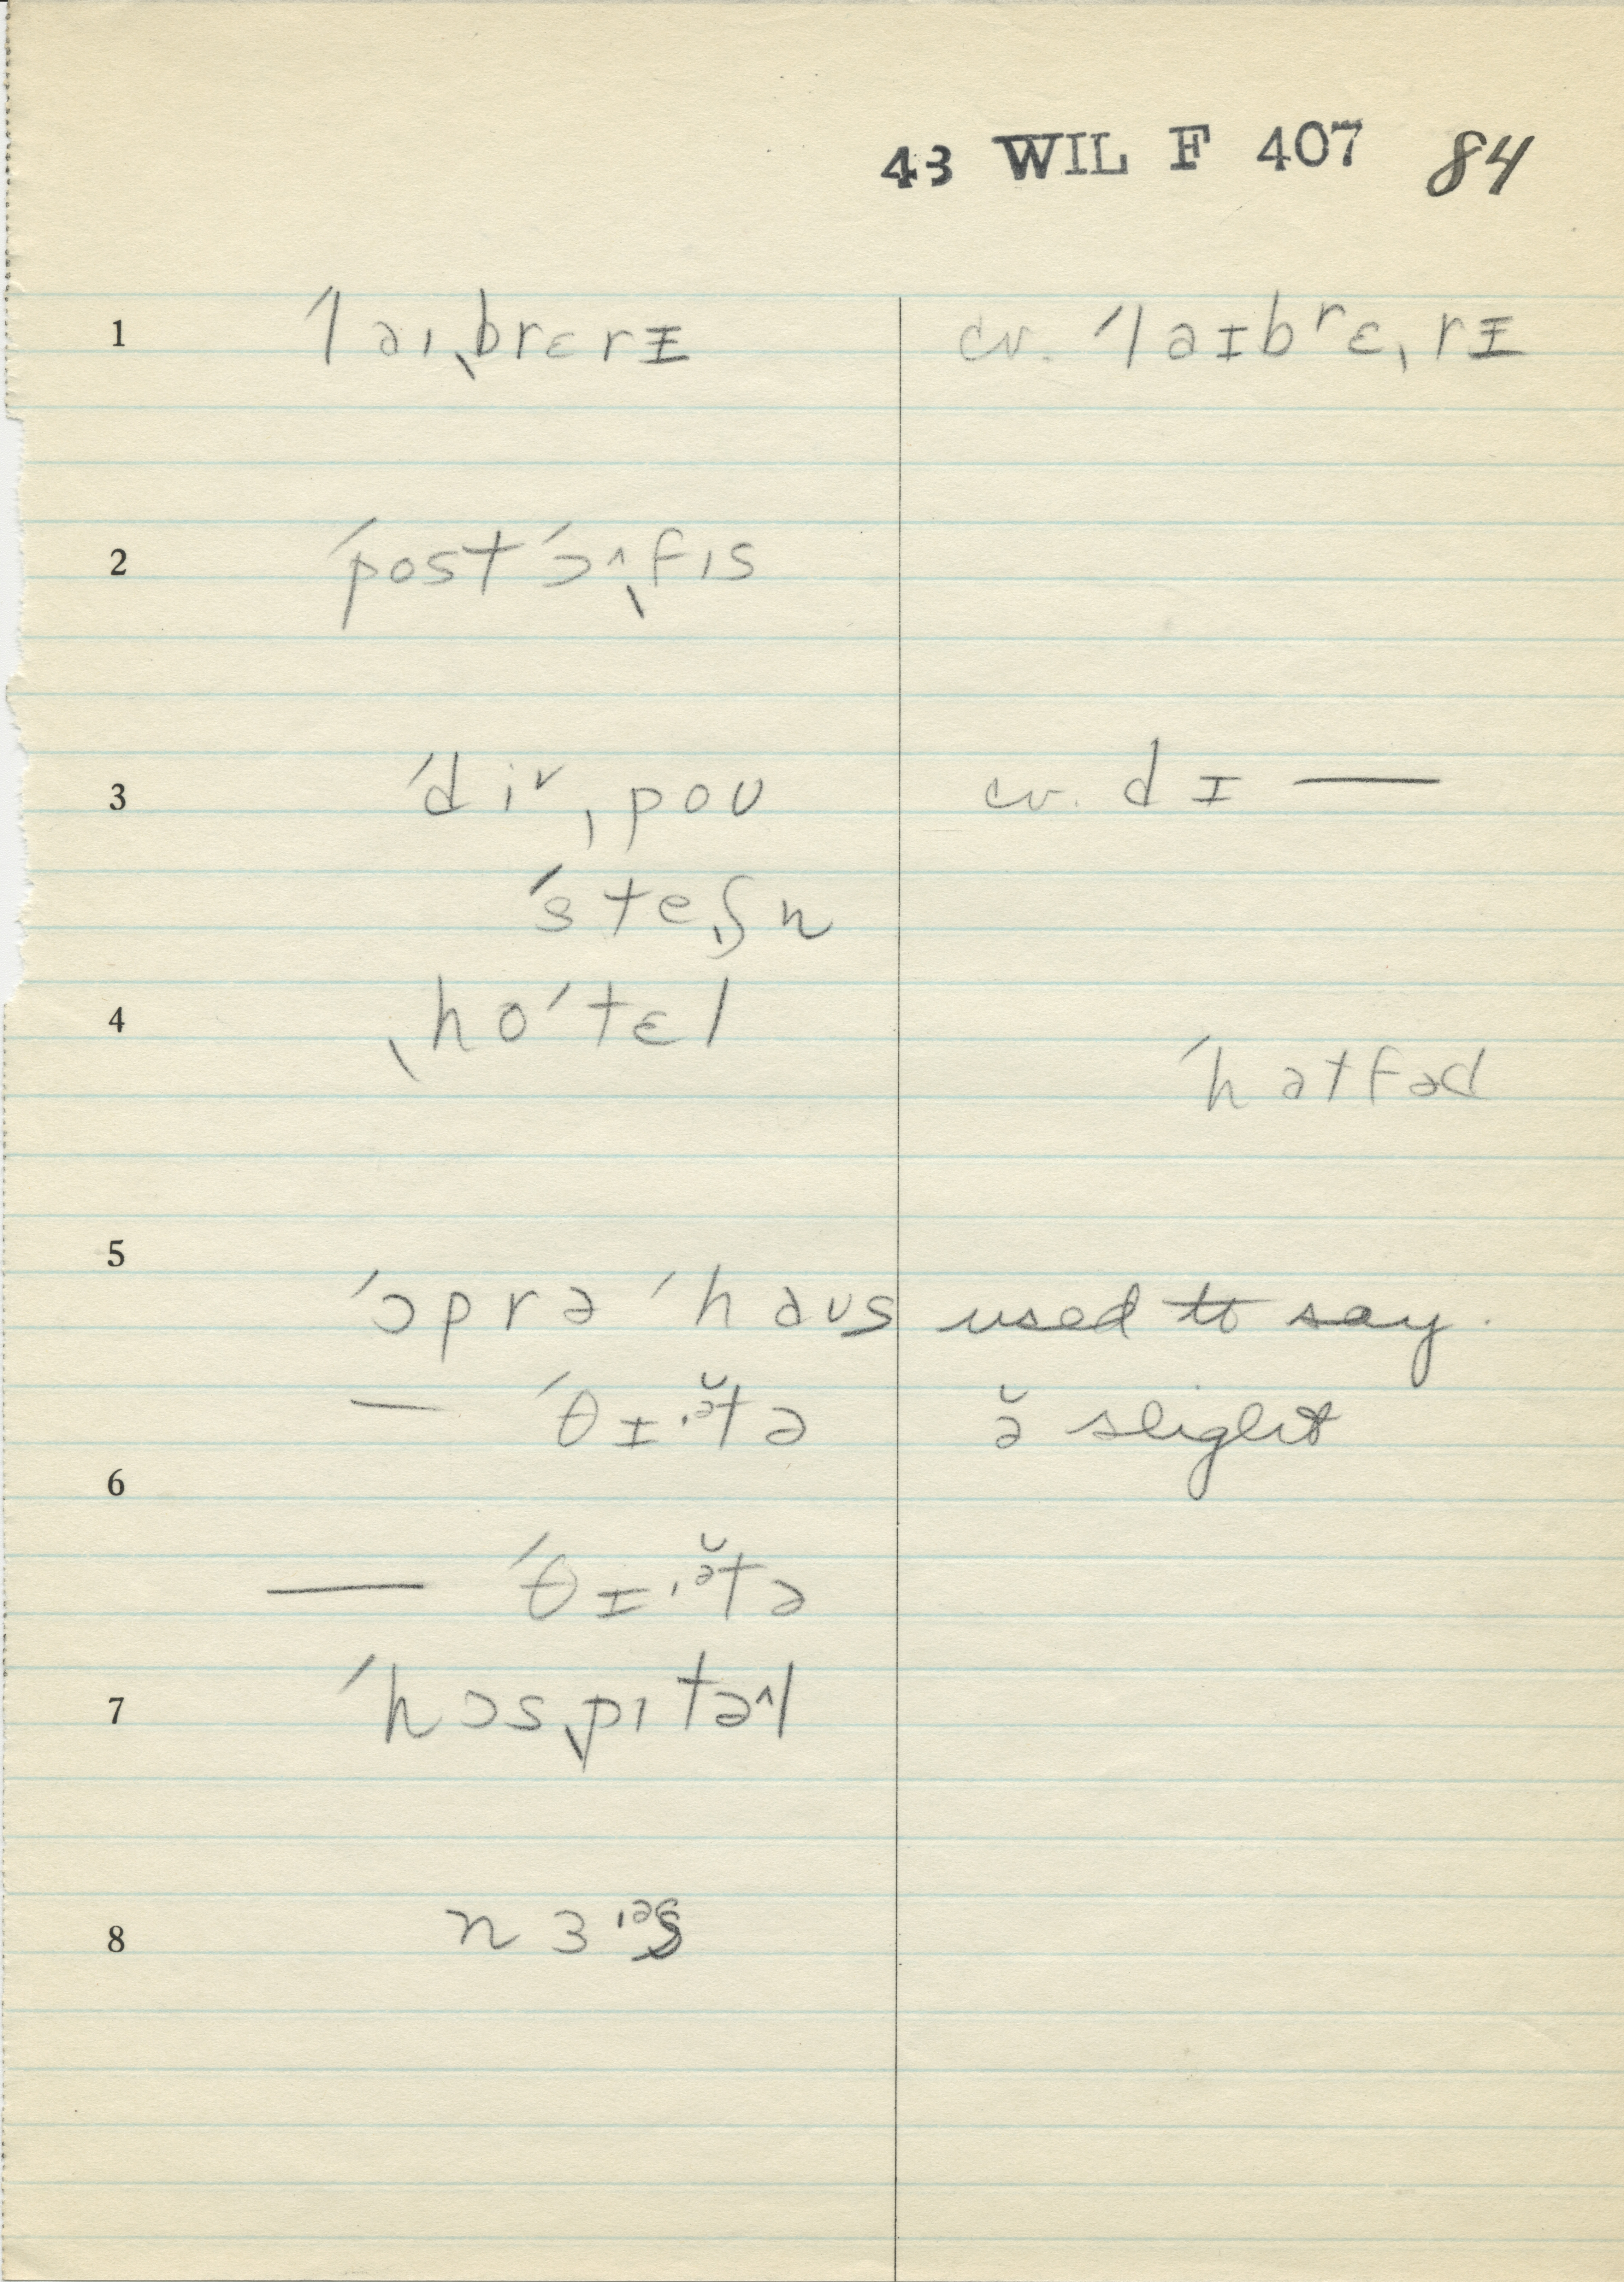 43 WIL F 407 84
1 ˈlaɪˌbrɛrɪ cv. ˈlaɪbʳɛˌrɪ
2 ˈpostˈɔ^ˌfɪs
3 ˈdi˅ˌpoʊ cv. dɪ —
ˈsteˌʃn
4 ˌhoˈtɛl
ˈhatfəd
5
ˈɔprə ˈhaʊs used to say.
— ˈθɪ.ə̆tə ə̆ slight
6
— ˈθɪ.ə̆tə
7 ˈhɔsˌpɪtə^l
8 nɜ.ᵊs